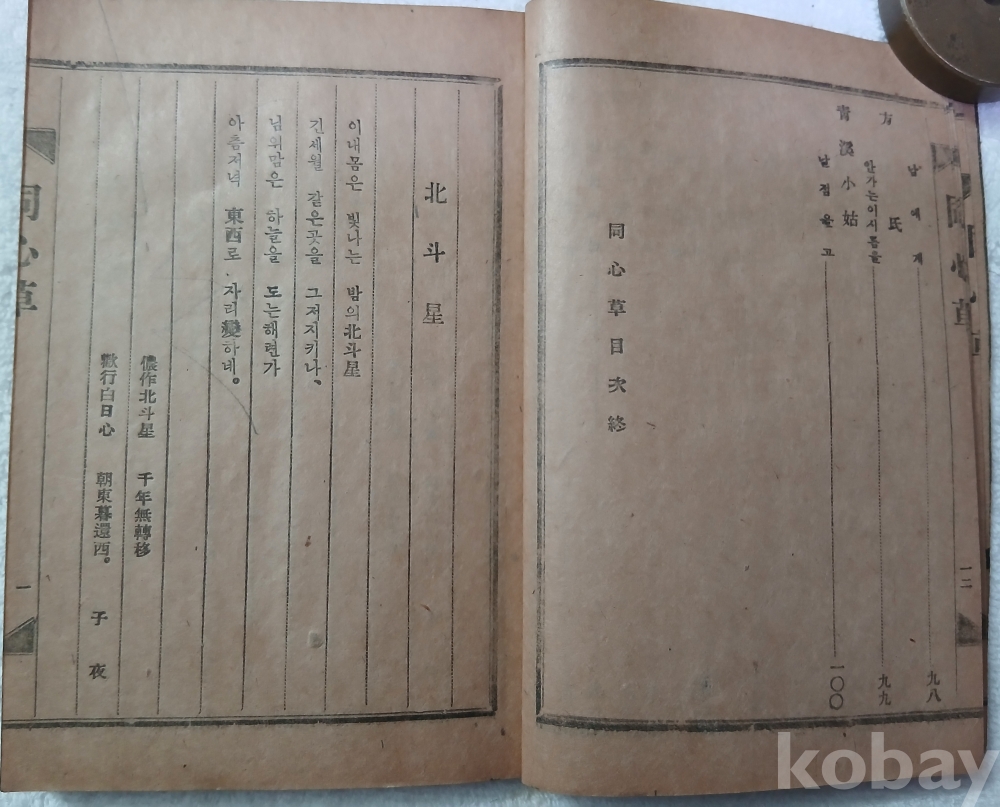 同心草
一二
남에게……九八
方氏
안가는이시름을……九九
靑溪小姑
날점을고……一〇〇
同心草目次終
北斗星
이내몸은 빛나는 밤의北斗星
긴세월 같은곳을 그저지키나、
님의맘은 하늘을 도는해런가
아츰저녁 東西로 자리變하네。
儂作北斗星 千年無轉移
歡行白日心 朝東暮還西。 子夜
同心草
一
kobay